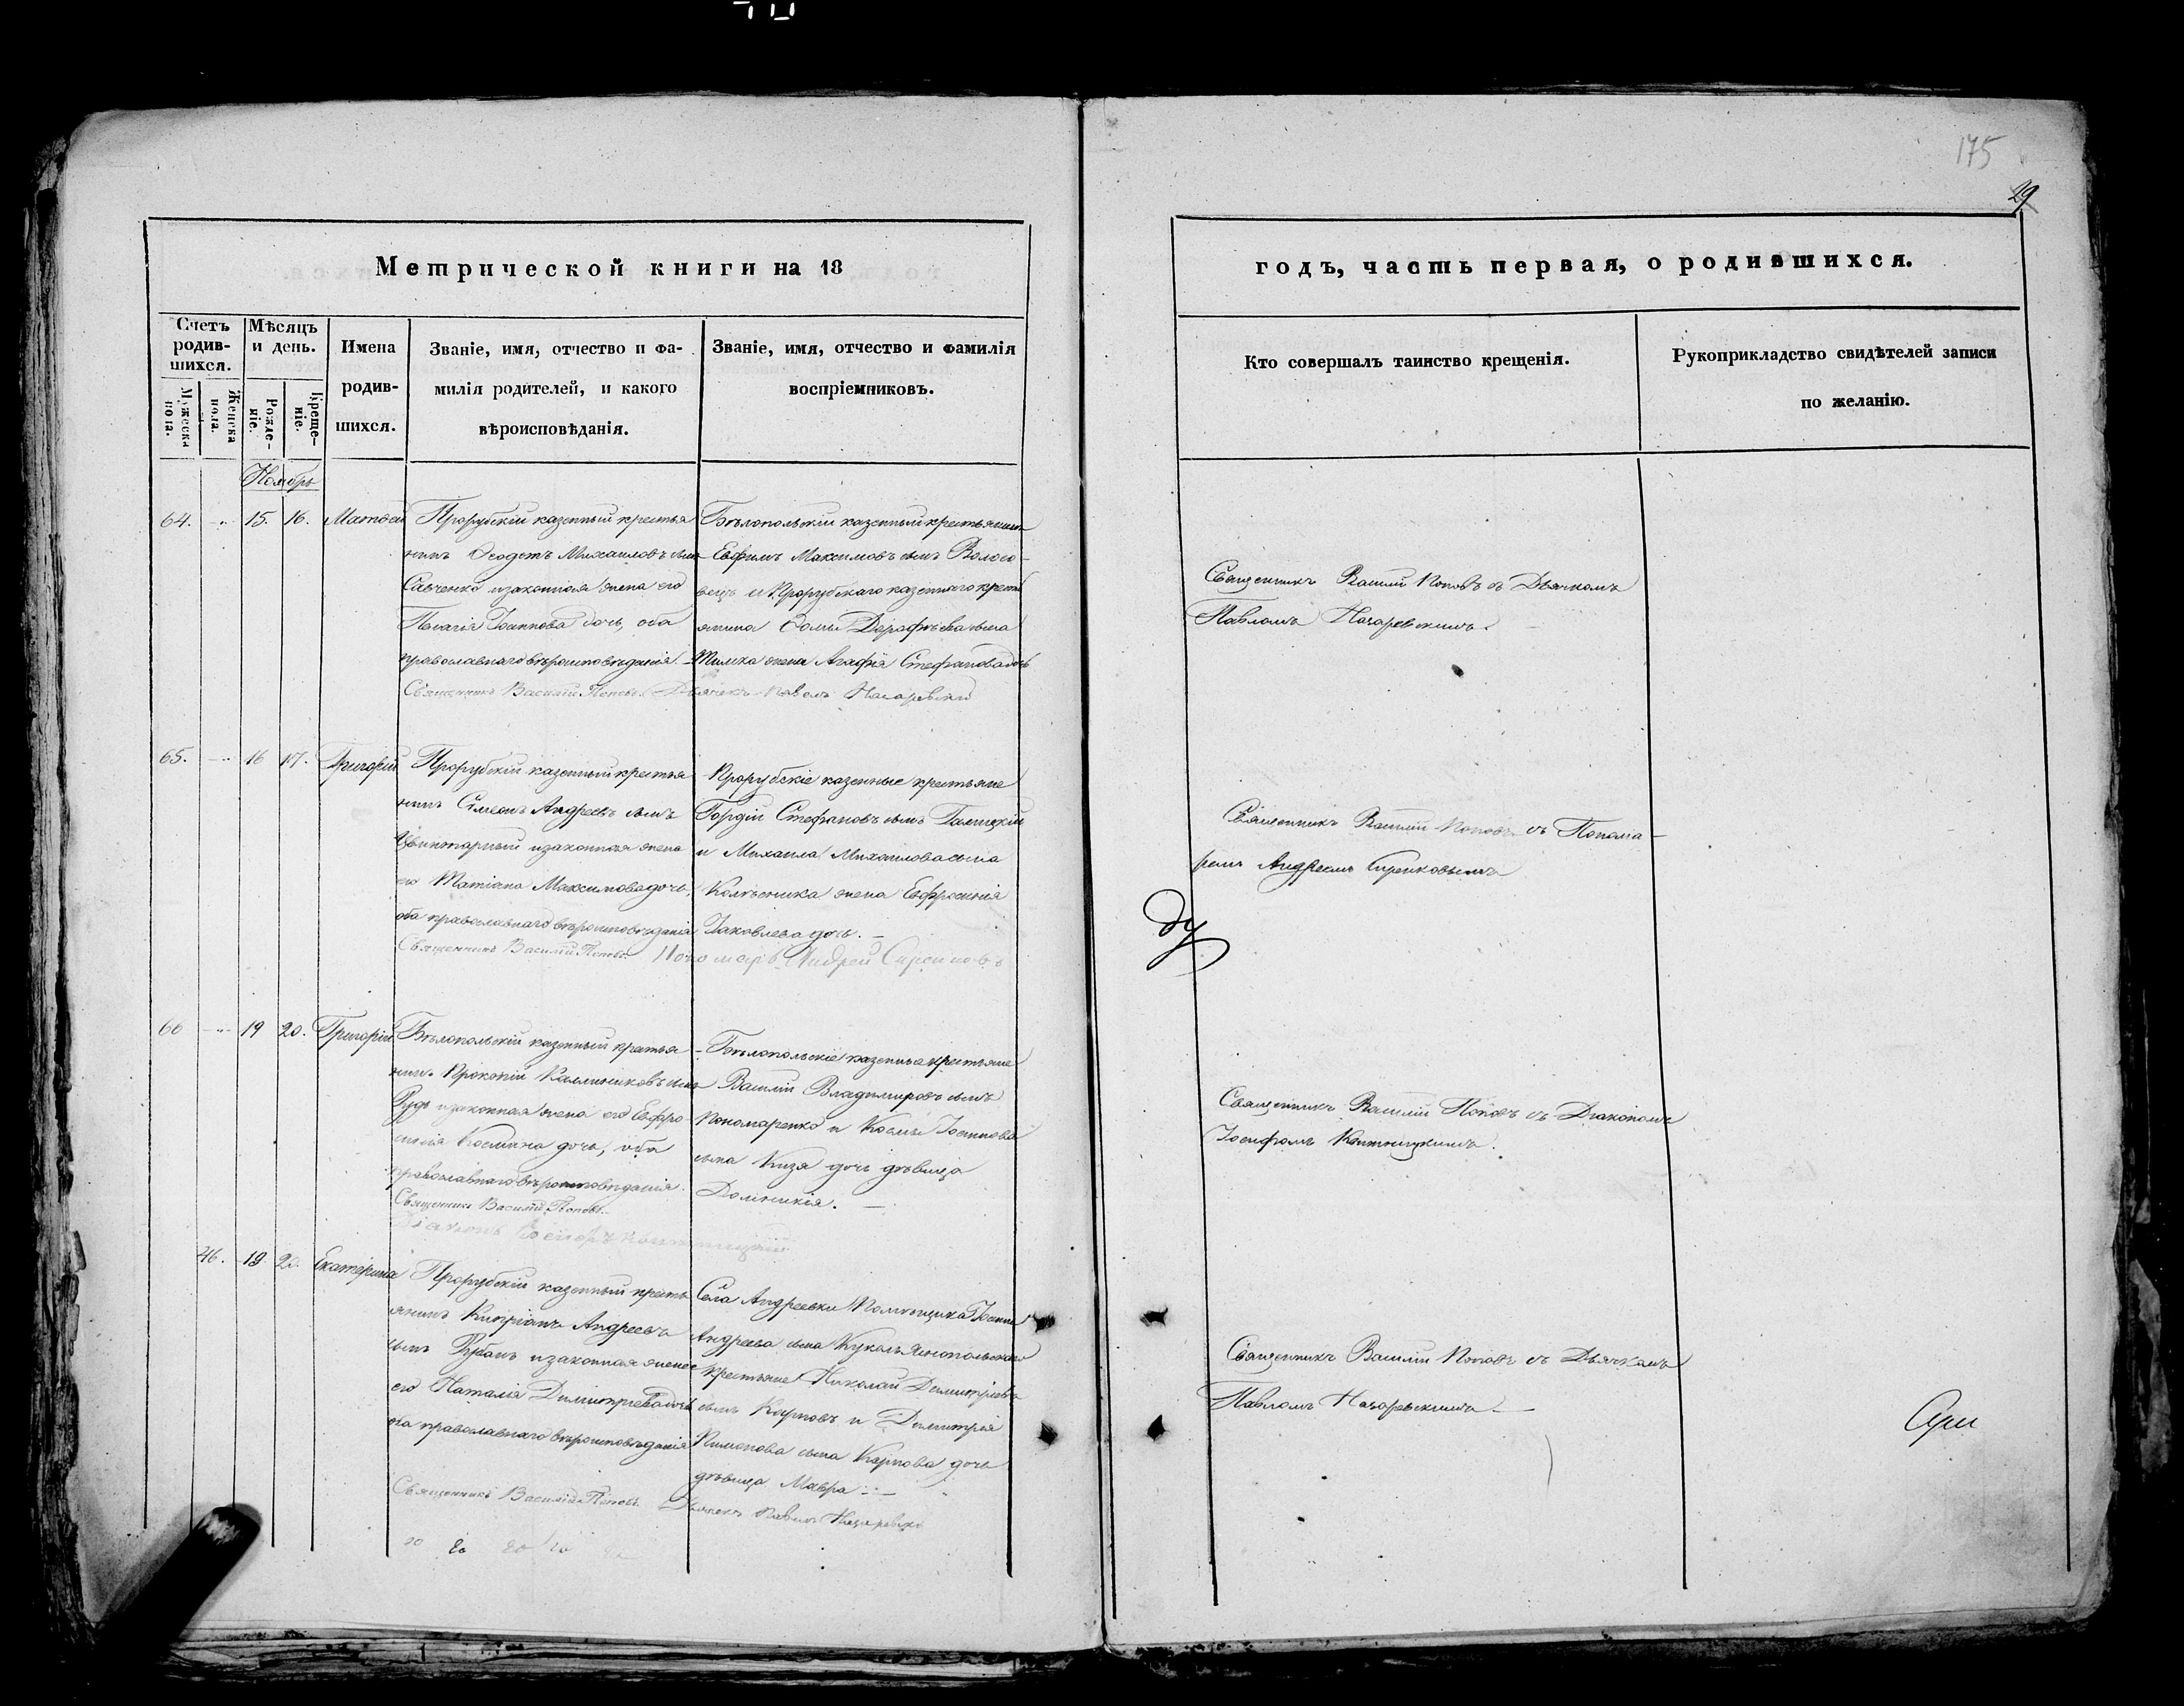 175
29
Метрической книги на 18
годъ, часть первая, о родившихся.
Счетъ родив-шихся.
Мужеска пола.
Женска пола.
Мѣсяцъ и день.
Рожде-ніе.
Креще-ніе.
Имена родив-шихся.
Званіе, имя, отчество и фа-
милія родителей, и какого
вѣроисповѣданія.
Званіе, имя, отчество и фамилія
воспріемниковъ.
Кто совершалъ таинство крещенія.
Рукоприкладство свидѣтелей записи
по желанію.
Ноябрь
64. 15. 16. Матѳей
Прорубскій казенный крестья
нинъ Ѳеодотъ Михаиловъ сынъ
Савченко и законная жена его
Пелагія Іоаннова дочь, оба
православнаго вѣроисповѣданія.
Бѣлопольскій казенный крестьянинъ
Евфимъ Максимовъ сынъ
и Прорубскаго казеннаго кресть
янина Ѳомы Дорофѣева сына
жена Агафія Стефанова дочь
Священникъ Василій Поповъ. Дьячекъ Павелъ Назаревскій
Священникъ Василій Поповъ съ Дьячкомъ
Павломъ Назаревскимъ.
65. 16 17. Григорій
Прорубскій казенный крестья
нинъ Симеонъ Андреевъ сынъ
Цвинтарный и законная жена
его Татіана Максимова дочь,
оба православнаго вѣроисповѣданія
Прорубскіе казенные крестьяне
Гордій Стефановъ сынъ Галицкій
и Михаила Михаилова сына
Колѣсника жена Евфросинія
Іаковлева дочь.
Священникъ Василій Поповъ Пономарь Андрей
Священникъ Василій Поповъ съ Понома-
ремъ Андреемъ
66 19 20. Григорій
Бѣлопольскій казенный крестья
нинъ Прокопій Каллиниковъ сынъ
Рудь и законная жена его Евфро
синія Космина дочь, оба
православнаго вѣроисповѣданія.
Бѣлопольскіе казенные крестьяне
Василій Владимировъ сынъ
Пономаренко и Космы Іоаннова
сына Кизя дочь дѣвица
Домникія.
Священникъ Василій Поповъ.
Діаконъ Іосифъ
Священникъ Василій Поповъ съ Діакономъ
Іосифомъ
46. 19 20. Екатерина
Прорубскій казенный кресть
янинъ Кипріанъ Андреевъ
сынъ Рубанъ и законная жена
его Наталія Димитріева дочь
оба православнаго вѣроисповѣданія
Села Андреевки Помѣщика Іоанна
Андреева сына
крестьяне Николай Димитріевъ
сынъ Карповъ и Димитрія
Пименова сына Карпова дочь
дѣвица Мавра
Священникъ Василій Поповъ. Дьячекъ Павелъ Назаревскій
Священникъ Василій Поповъ съ Дьячкомъ
Павломъ Назаревскимъ